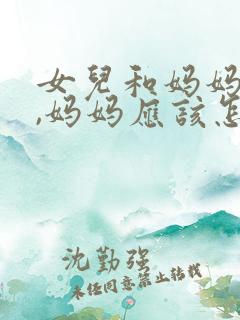 女兒和妈妈
,妈妈应该怎
沈勤强
未经同意禁止转载